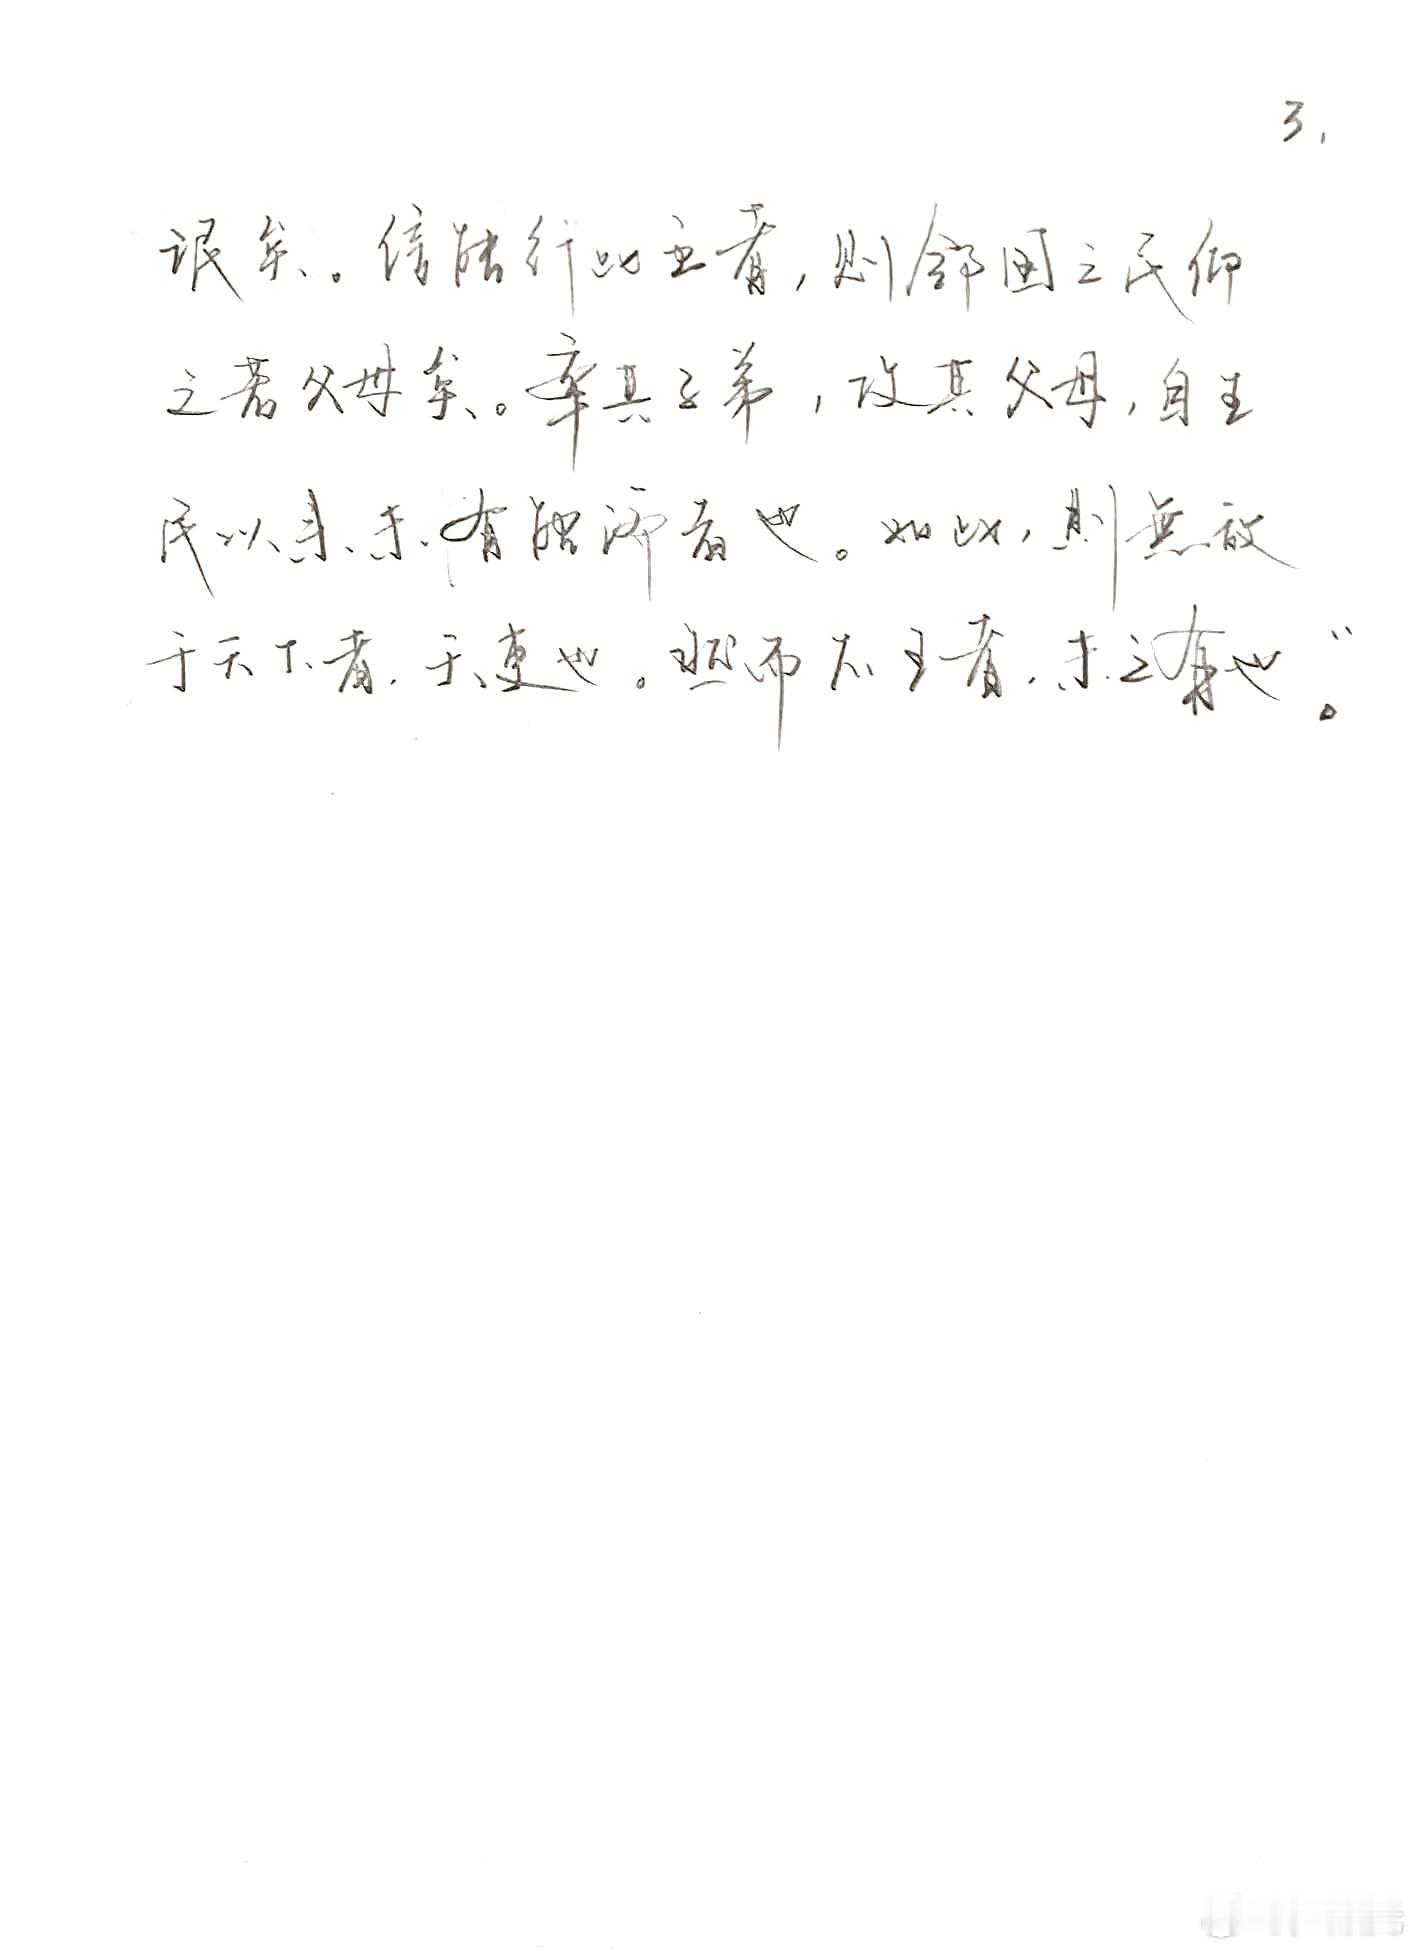 3.
氓矣。信能行此五者，则邻国之民仰
之若父母矣。率其子弟，攻其父母，自生
民以来，未有能济者也。如此，则無敌
于天下者，天吏也。然而不王者，未之有也”。